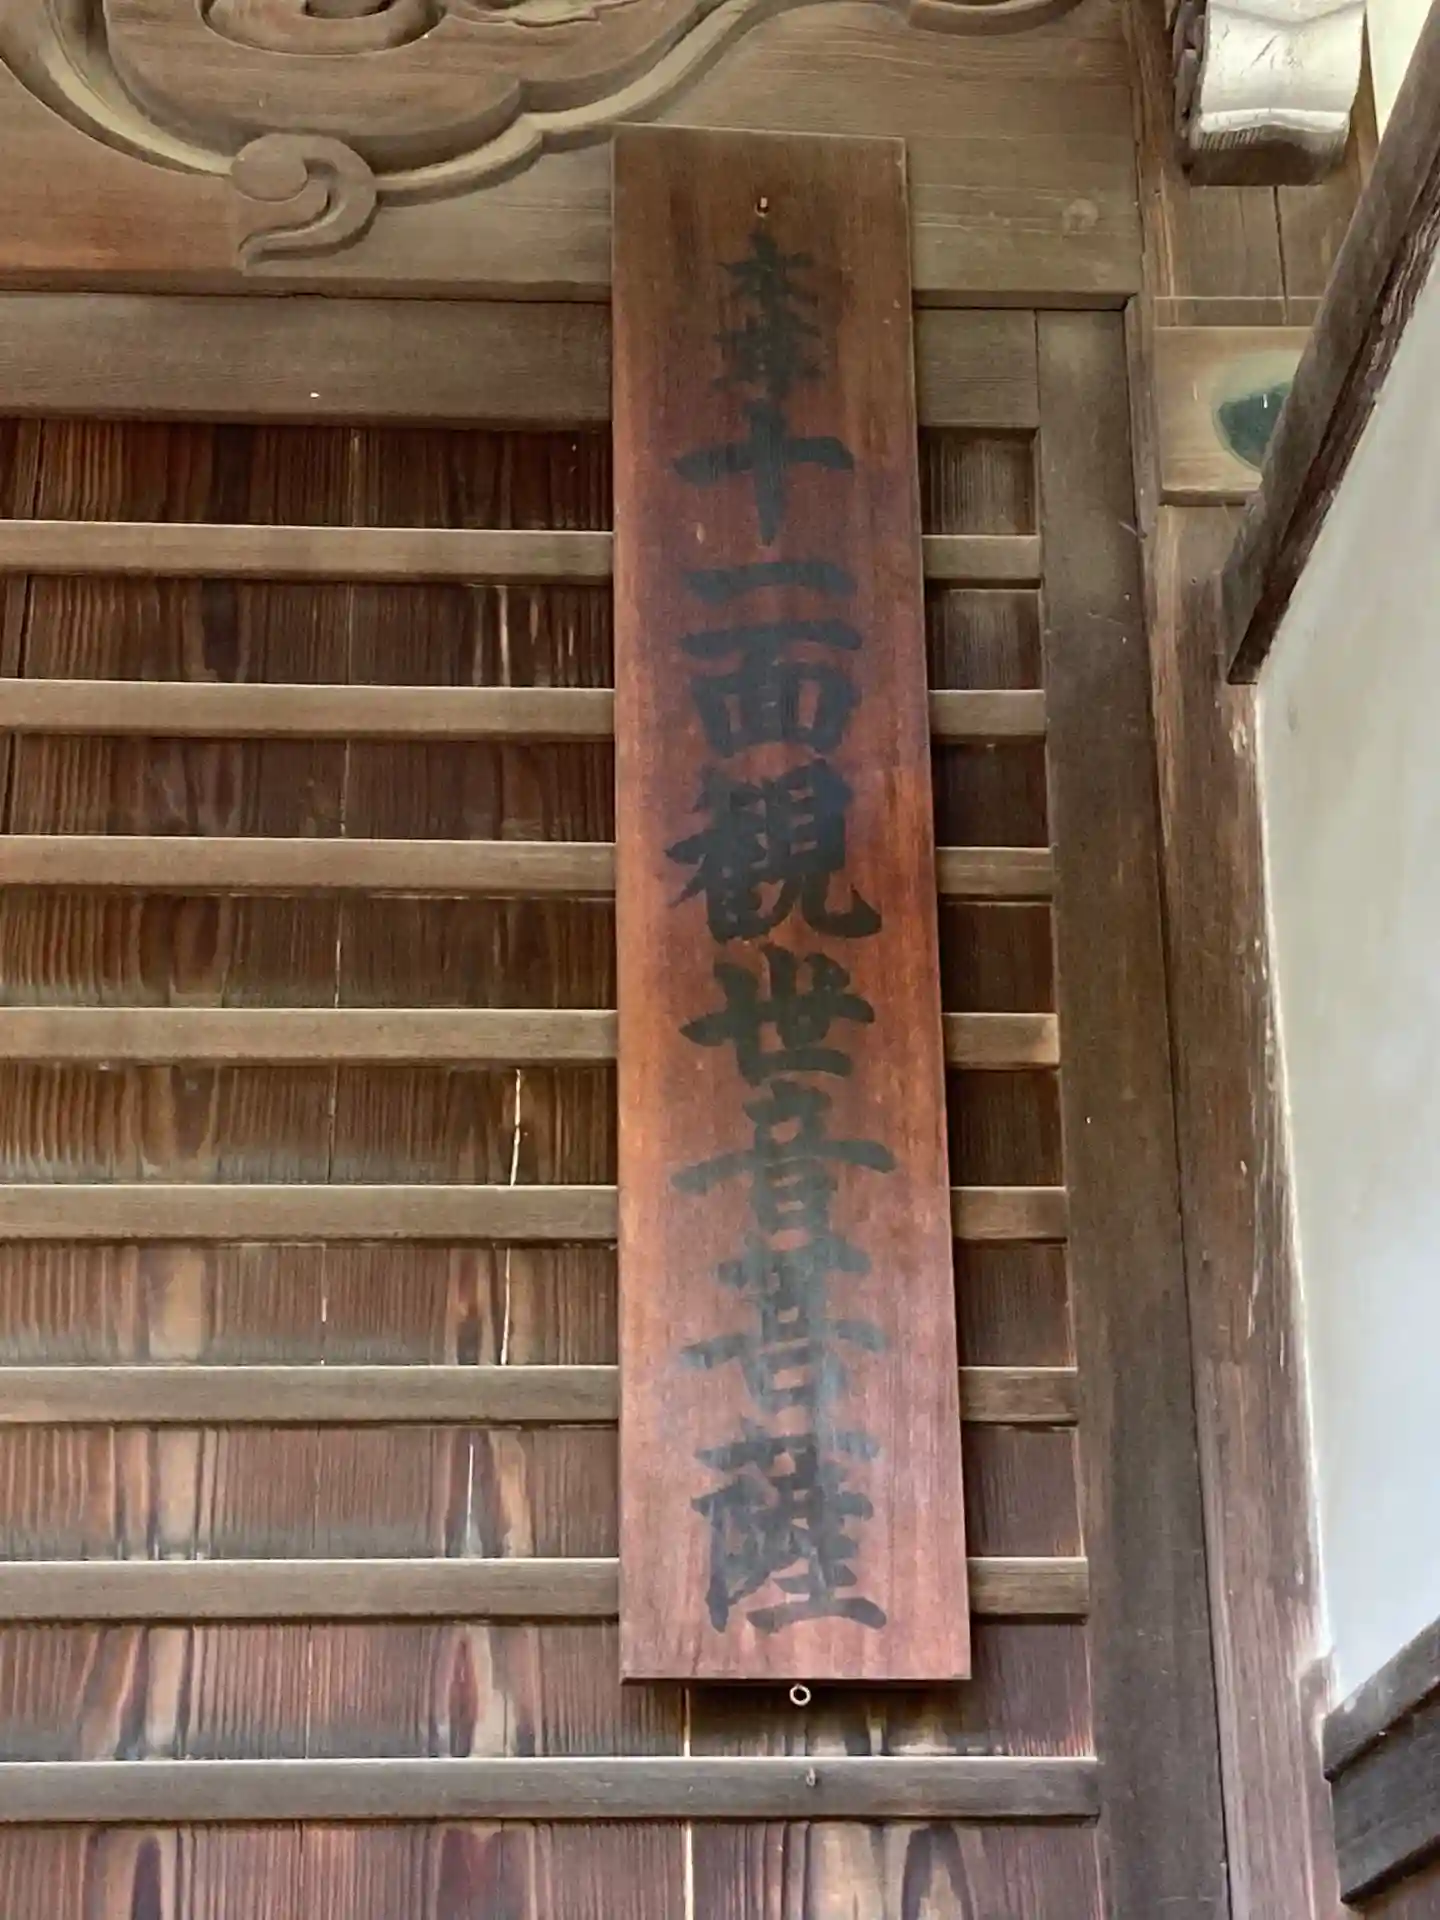 本尊十一面観世音菩薩